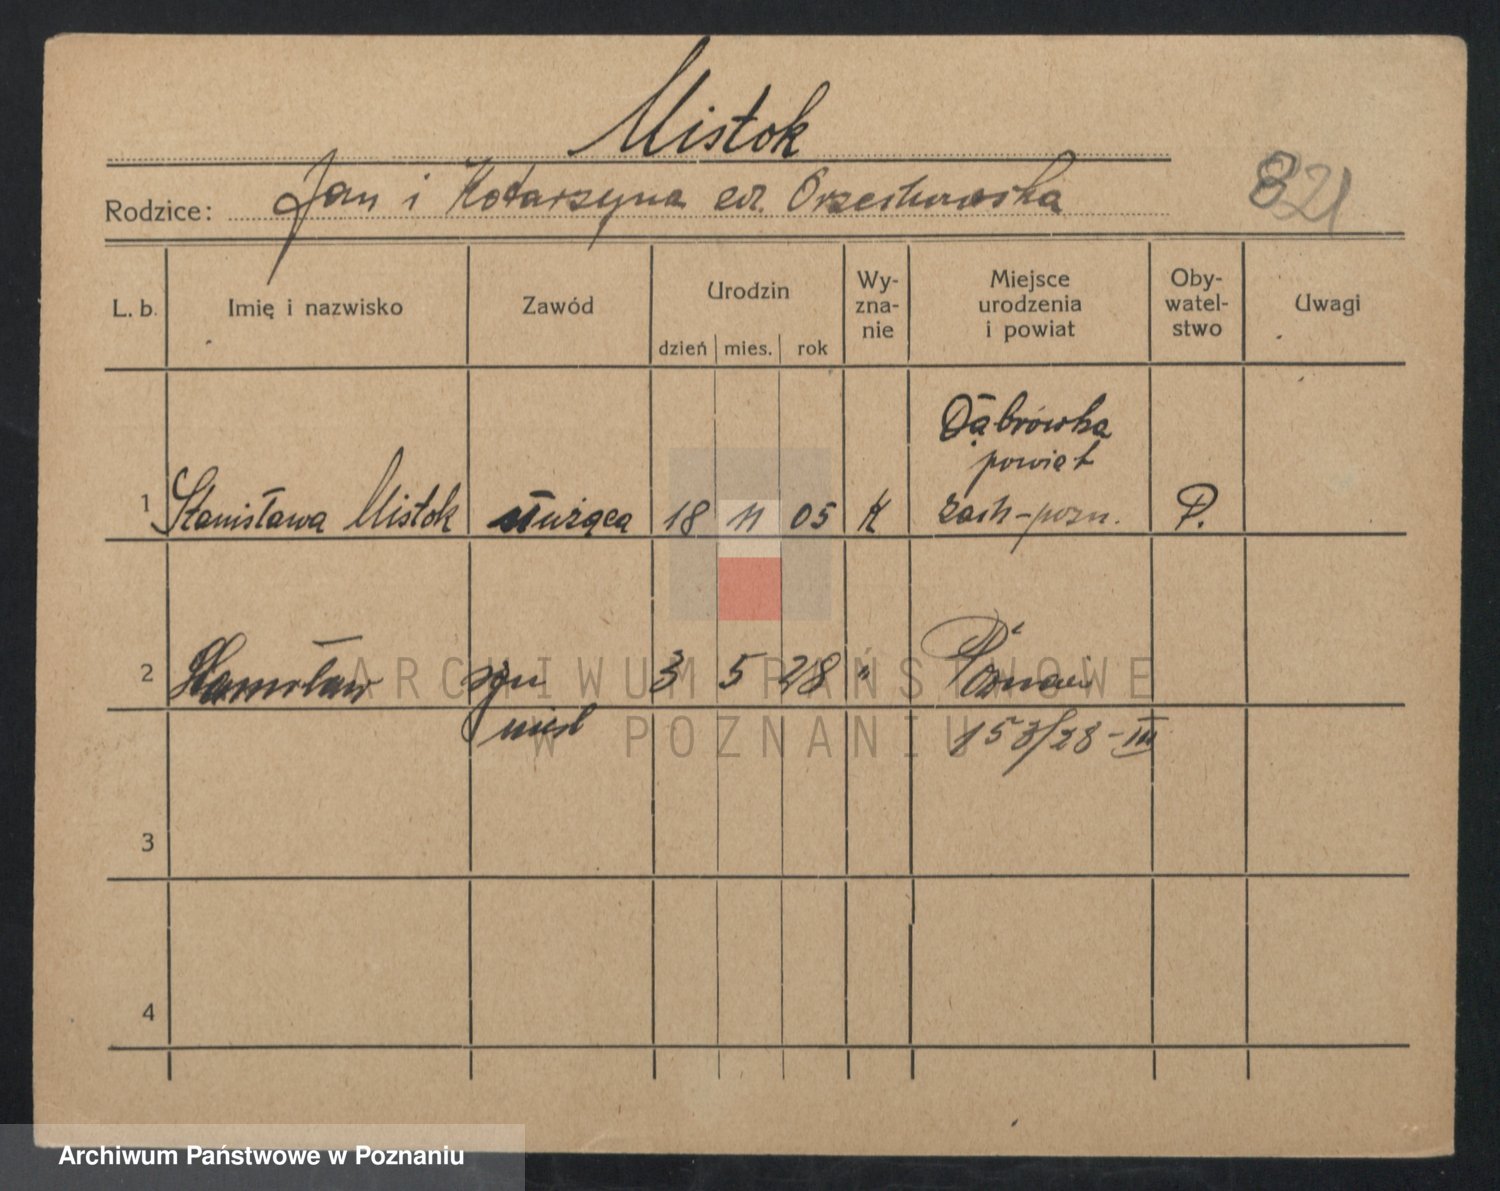 Mistok
Rodzice: Jan i Katarzyna Orzechowska
821
L. b. Imię i nazwisko Zawód Urodzin Wy- zna- nie Miejsce urodzenia i powiat Oby- watel- stwo Uwagi
dzień mies. rok
Dąbrówka
powiat
1 Stanisława Mistok służąca 18 11 05 K zach-pozn. P.
2 Stanisław syn 3 5 28 " Poznań
nieśl 153/28-III
3
4
ARCHIWUM PAŃSTWOWE
W POZNANIU
Archiwum Państwowe w Poznaniu